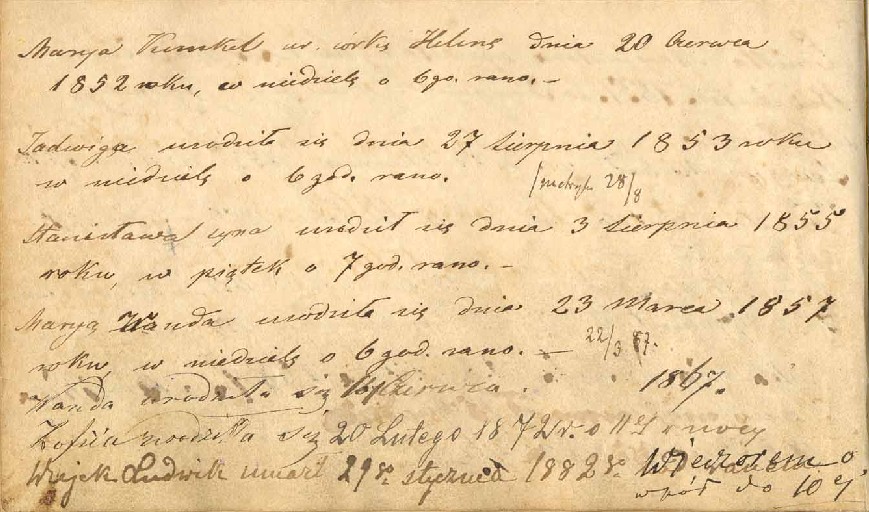 Marya Kunkel ur. córkę Helenę dnia 20 Czerwca
1852 roku, w niedzielę o 6 go. rano. –
Jadwiga urodziła się dnia 27 Sierpnia 1853 roku
w niedzielę o 6 god. rano. /metryka 28/8
Stanisława syna urodził się dnia 3 Sierpnia 1855
roku, w piątek o 7 god. rano. –
Maryą Wanda urodziła się dnia 23 Marca 1857
roku, w niedzielę o 6 god. rano. – 22/3 57.
Wanda urodziła się Czerwca. 1867.
Zofija urodziła się 20 Lutego 1872 r. o 11ej w nocy
Wujek Ludwik umarł 29go stycznia 1882 r. Wieczorem o
wpół do 10ej